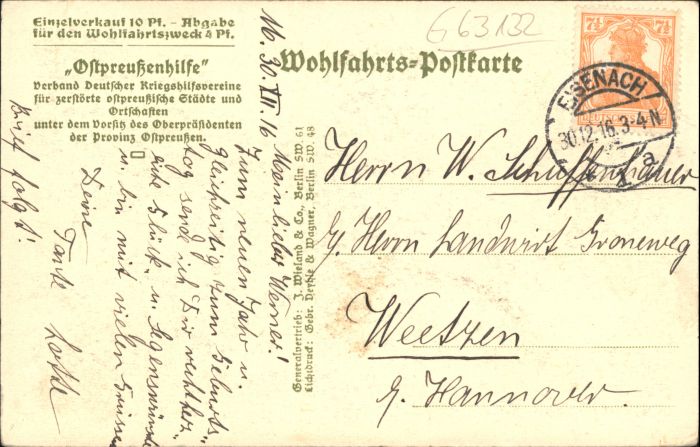 Einzelverkauf 10 Pf. – Abgabe
für den Wohlfahrtszweck 4 Pf.
„Ostpreußenhilfe"
Verband Deutscher Kriegshilfsvereine
für zerstörte ostpreußische Städte und
Ortschaften
unter dem Vorsitz des Oberpräsidenten
der Provinz Ostpreußen.
Wohlfahrts-Postkarte
G 63132
7½ 7½
EISENACH
30.12.16.3-4N
1 a
Generalvertrieb: J. Wieland & Co., Berlin SW. 61
Lichtdruck: Gebr. Deyhle & Wagner, Berlin SW. 48
30. XII. 16
Mein lieber Werner!
Zum neuen Jahr u.
gleichzeitig zum Geburts-
tag send ich Dir recht herz-
liche Glück- u. Segenswünsche
u. bin mit vielen Grüssen
Deine
Tante Lotte
Brief folgt!
Herrn W.
Herrn Landwirt Groneweg
Weetzen
b. Hannover